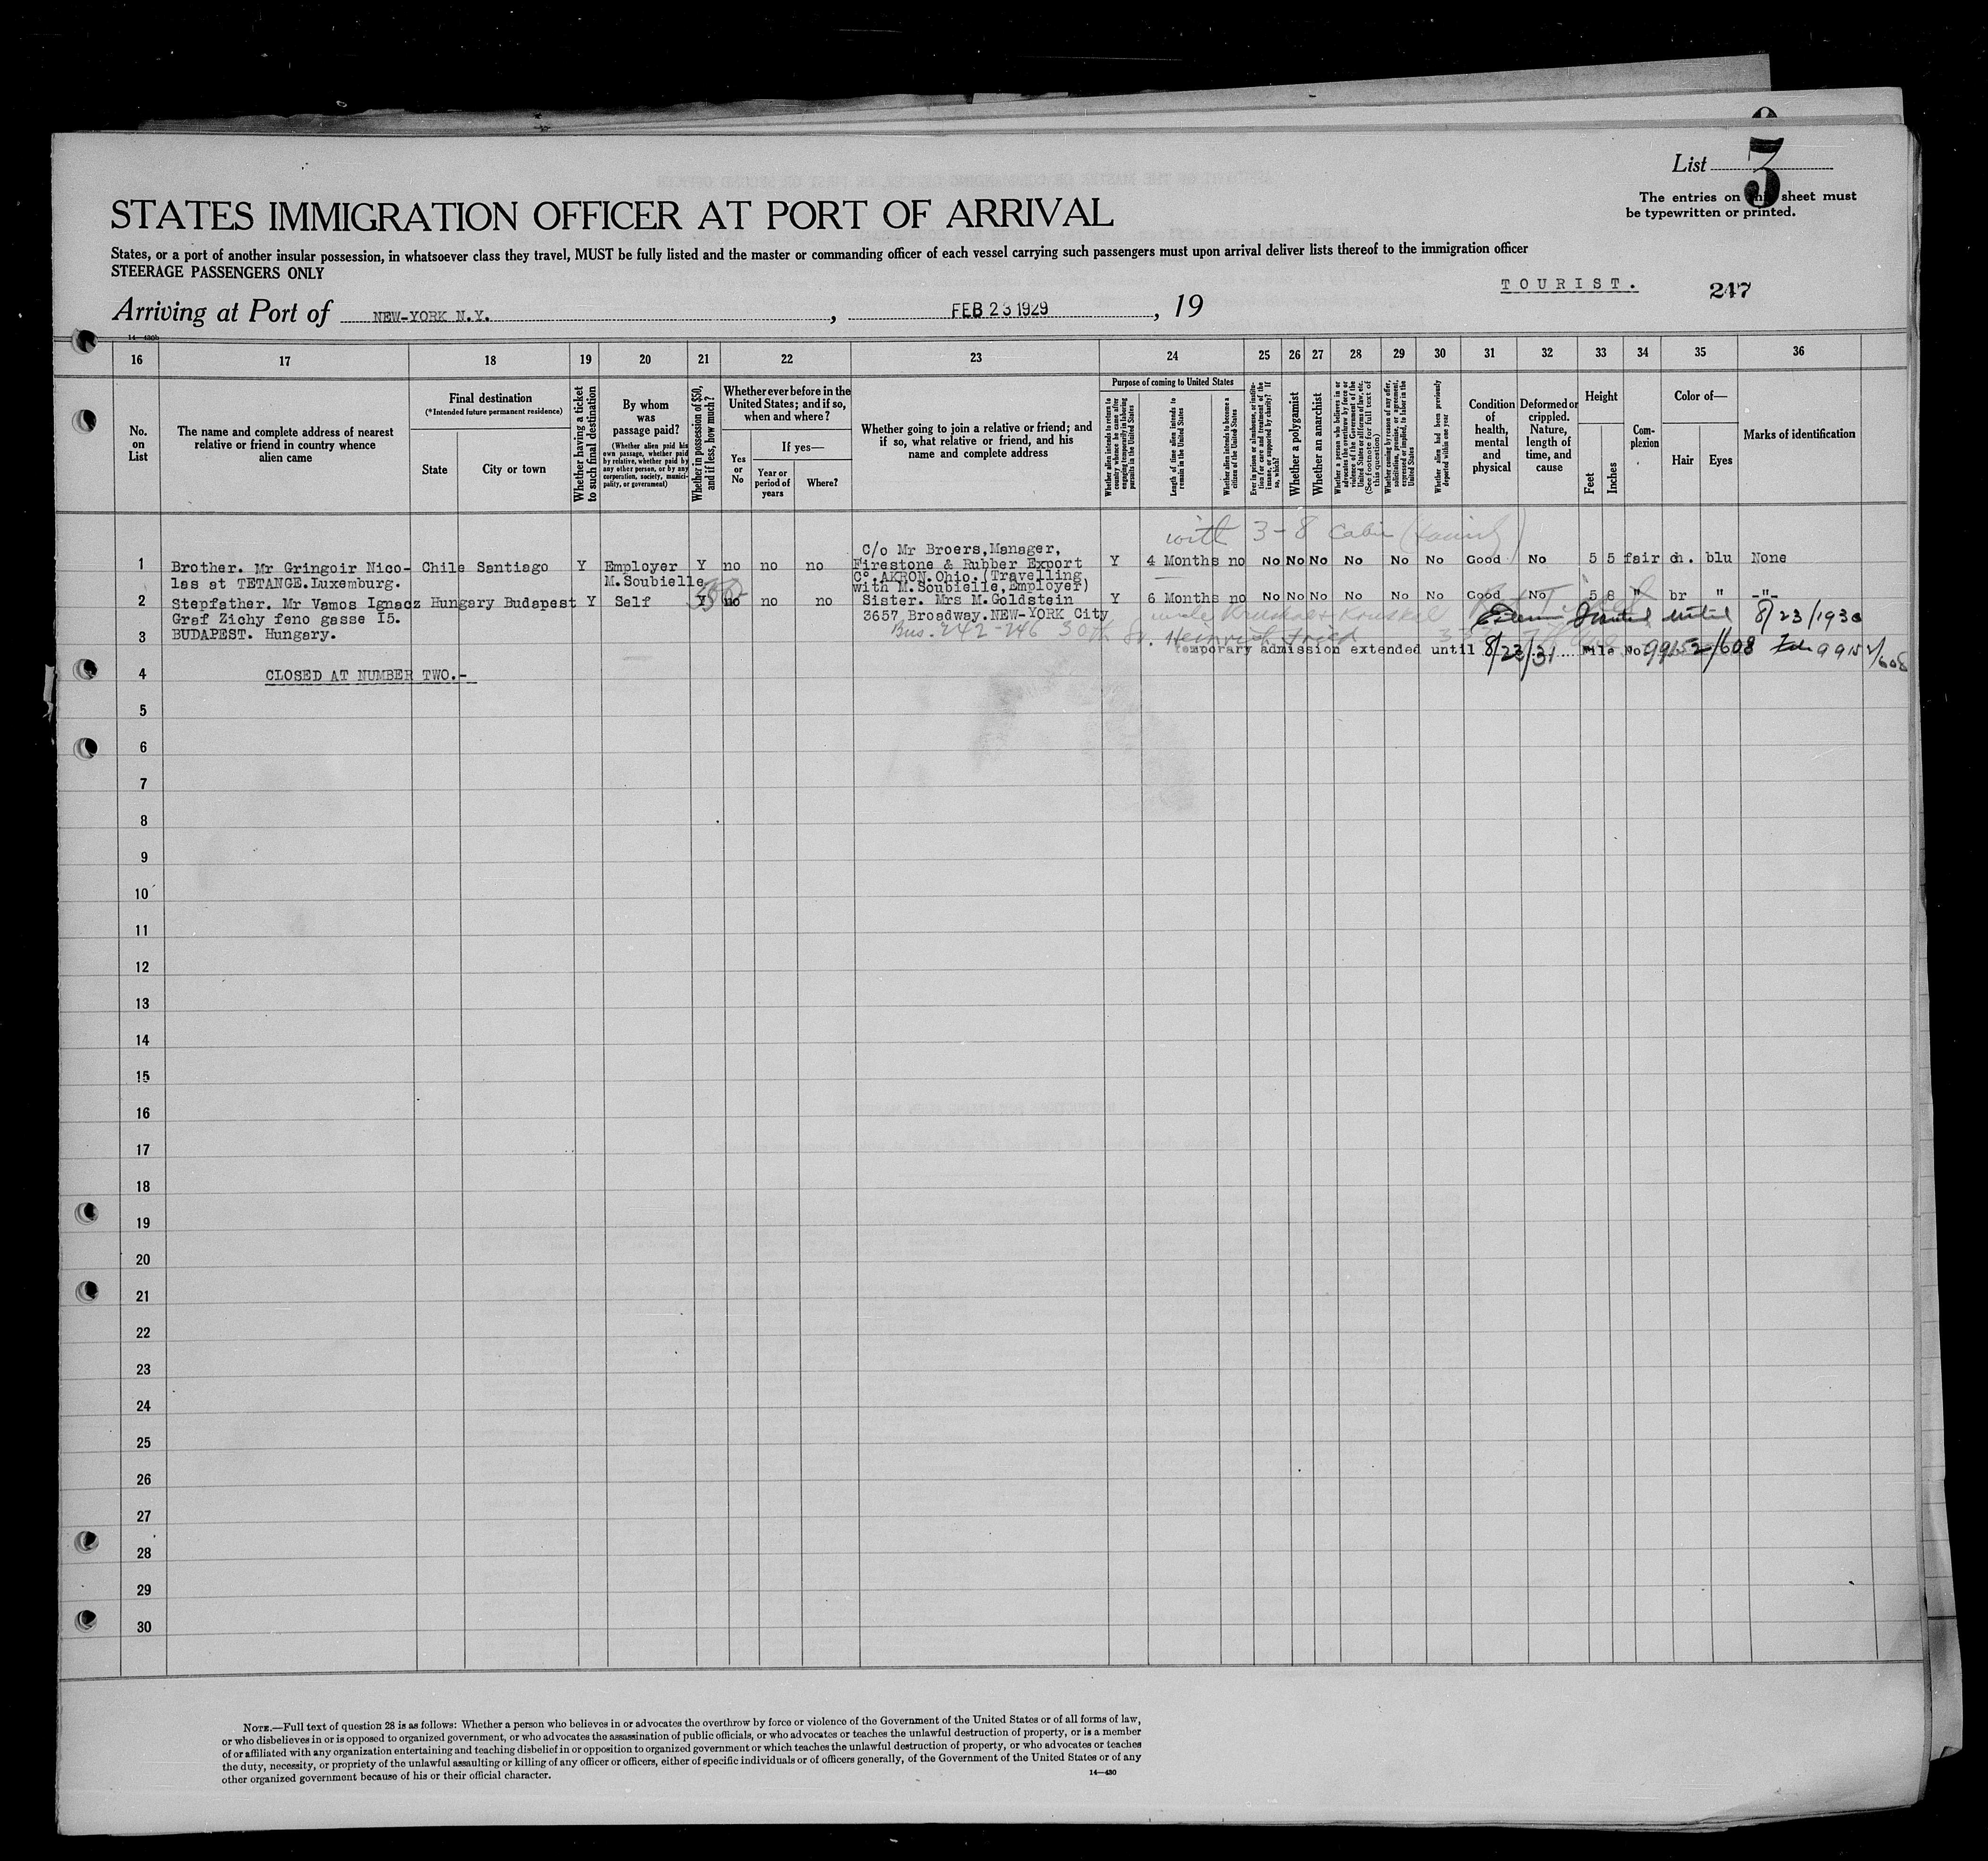 List 3
The entries on this sheet must
be typewritten or printed.
STATES IMMIGRATION OFFICER AT PORT OF ARRIVAL
States, or a port of another insular possession, in whatsoever class they travel, MUST be fully listed and the master or commanding officer of each vessel carrying such passengers must upon arrival deliver lists thereof to the immigration officer
STEERAGE PASSENGERS ONLY
TOURIST. 247
Arriving at Port of NEW-YORK N.Y. , FEB 23 1929 , 19
14—430b
16 17 18 19 20 21 22 23 24 25 26 27 28 29 30 31 32 33 34 35 36
No.
on
List
The name and complete address of nearest
relative or friend in country whence
alien came
Final destination
(*Intended future permanent residence)
State
City or town
Whether having a ticket
to such final destination
By whom
was
passage paid?
(Whether alien paid his
own passage, whether paid
by relative, whether paid by
any other person, or by any
corporation, society, munici-
pality, or government)
Whether in possession of $50,
and if less, how much?
Whether ever before in the
United States; and if so,
when and where?
If yes—
Yes
or
No
Year or
period of
years
Where?
Whether going to join a relative or friend; and
if so, what relative or friend, and his
name and complete address
Purpose of coming to United States
Whether alien intends to return to
country whence he came after
engaging temporarily in laboring
pursuits in the United States
Length of time alien intends to
remain in the United States
Whether alien intends to become a
citizen of the United States
Ever in prison or almshouse, or institu-
tion for care and treatment of the
insane, or supported by charity? If
so, which?
Whether a polygamist
Whether an anarchist
Whether a person who believes in or
advocates the overthrow by force or
violence of the Government of the
United States or all forms of law, etc.
(See footnote for full text of
this question)
Whether coming by reason of any offer,
solicitation, promise, or agreement,
expressed or implied, to labor in the
United States
Whether alien had been previously
deported within one year
Condition
of
health,
mental
and
physical
Deformed or
crippled.
Nature,
length of
time, and
cause
Height
Feet
Inches
Com-
plexion
Color of—
Hair
Eyes
Marks of identification
with 3-8 Cabin (family)
C/o Mr Broers,Manager,
1 Brother. Mr Gringoir Nico- Chile Santiago Y Employer Y no no no Firestone & Rubber Export Y 4 Months no No No No No No No Good No 5 5 fair ch. blu None
las at TETANGE.Luxemburg. M.Soubielle C°.AKRON.Ohio.(Travelling
with M.Soubielle,Employer)
2 Stepfather. Mr Vamos Ignacz Hungary Budapest Y Self Y no no no Sister. Mrs M.Goldstein Y 6 Months no No No No No No No Good No 5 8 " br " -"-
Graf Zichy feno gasse I5. 3657 Broadway.NEW-YORK City
until 8/23/1930
3 BUDAPEST. Hungary. Bus. 242-246 30th St. Heinrich Fried
temporary admission extended until 8/23/31 File No. 99152/608 99152/608
4 CLOSED AT NUMBER TWO.-
5
6
7
8
9
10
11
12
13
14
15
16
17
18
19
20
21
22
23
24
25
26
27
28
29
30
NOTE.—Full text of question 28 is as follows: Whether a person who believes in or advocates the overthrow by force or violence of the Government of the United States or of all forms of law,
or who disbelieves in or is opposed to organized government, or who advocates the assassination of public officials, or who advocates or teaches the unlawful destruction of property, or is a member
of or affiliated with any organization entertaining and teaching disbelief in or opposition to organized government or which teaches the unlawful destruction of property, or who advocates or teaches
the duty, necessity, or propriety of the unlawful assaulting or killing of any officer or officers, either of specific individuals or of officers generally, of the Government of the United States or of any
other organized government because of his or their official character.
14—430